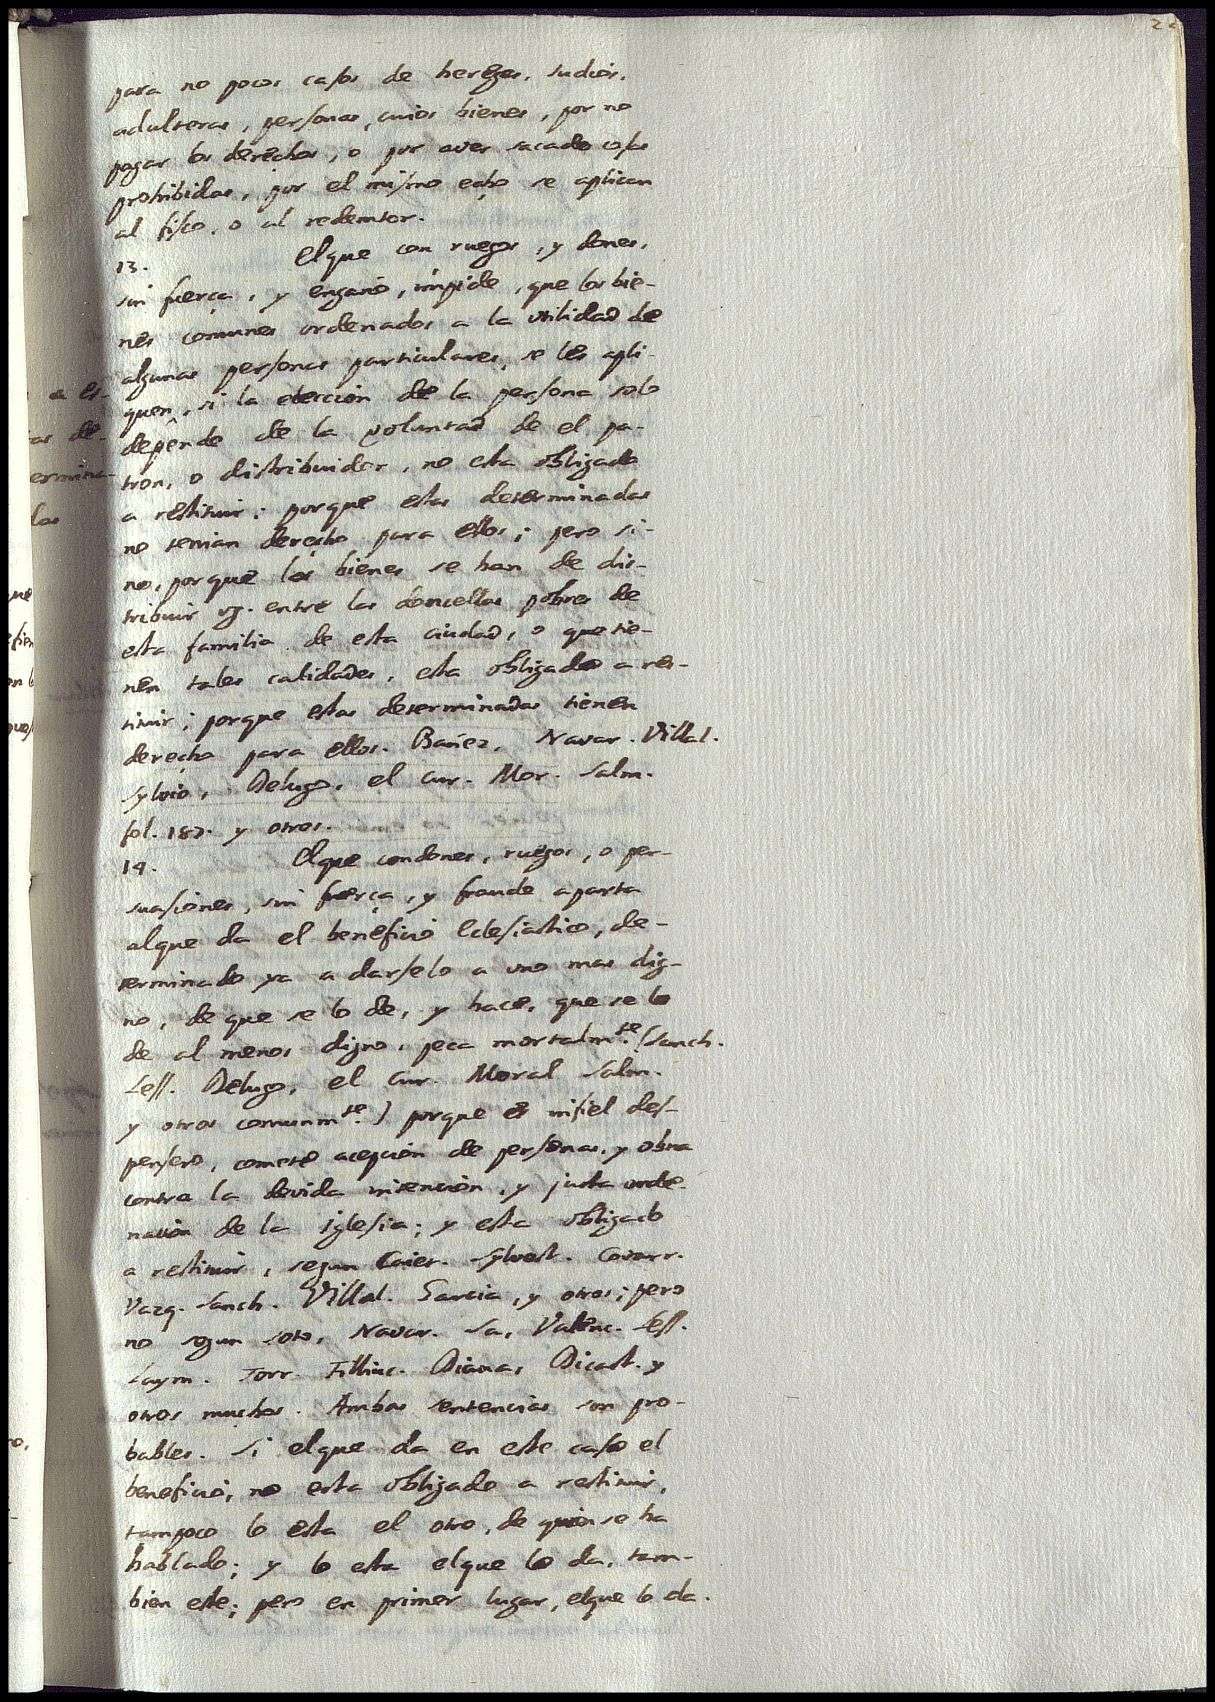 para no pocos casos de hereges, judios,
adulteras, personas, cuios bienes, por no
pagar los derechos, o por aver sacado cosas
prohibidas, por el mismo echo se aplican
al fisco, o al redemtor.
13. El que con ruegos, y dones,
sin fuerça, y engaño, impide, que los bie-
nes comunes ordenados a la utilidad de
algunas personas particulares, se les apli-
quen, si la elección de la persona solo
depende de la voluntad de el pa-
tron, o distribuidor, no esta obligado
a restituir; porque estas determinadas
no tenian derecho para ellos; pero si-
no, porque los bienes se han de dis-
tribuir vg. entre las doncellas pobres de
esta familia de esta ciudad, o que tie-
nen tales calidades, esta obligado a res-
tituir; porque estas determinadas tienen
derecho para ellos. Bañez, Navar. Villal.
Sylvio, Delugo, el Cur. Mor. Salm.
fol. 187. y otros.
14. El que con dones, ruegos, o per-
suasiones, sin fuerça, y fraude aparta
al que da el beneficio Eclesiastico, de-
terminado ya a darselo a uno mas dig-
no, de que se lo de, y hace, que se lo
de al menos digno, peca mortalmte. (Sanch.
Less. Delugo, el Cur. Moral Salm.
y otros comunmte.) porque es infiel des-
pensero, comete acepcion de personas, y obra
contra la devida intencion, y justa orde-
nacion de la iglesia; y esta obligado
a restituir, segun Caiet. Sylvest. Covarr.
Vazq. Sanch. Villal. Garcia, y otros; pero
no segun Soto, Navar. Sa, Valenc. Less.
Laym. Torr. Filliuc. Diana, Dicast. y
otros muchos. Ambas sentencias son pro-
bables. Si el que da en este caso el
beneficio, no esta obligado a restituir,
tampoco lo esta el otro, de quien se ha
hablado; y lo esta el que lo da, tam-
bien este; pero en primer lugar, el que lo da.